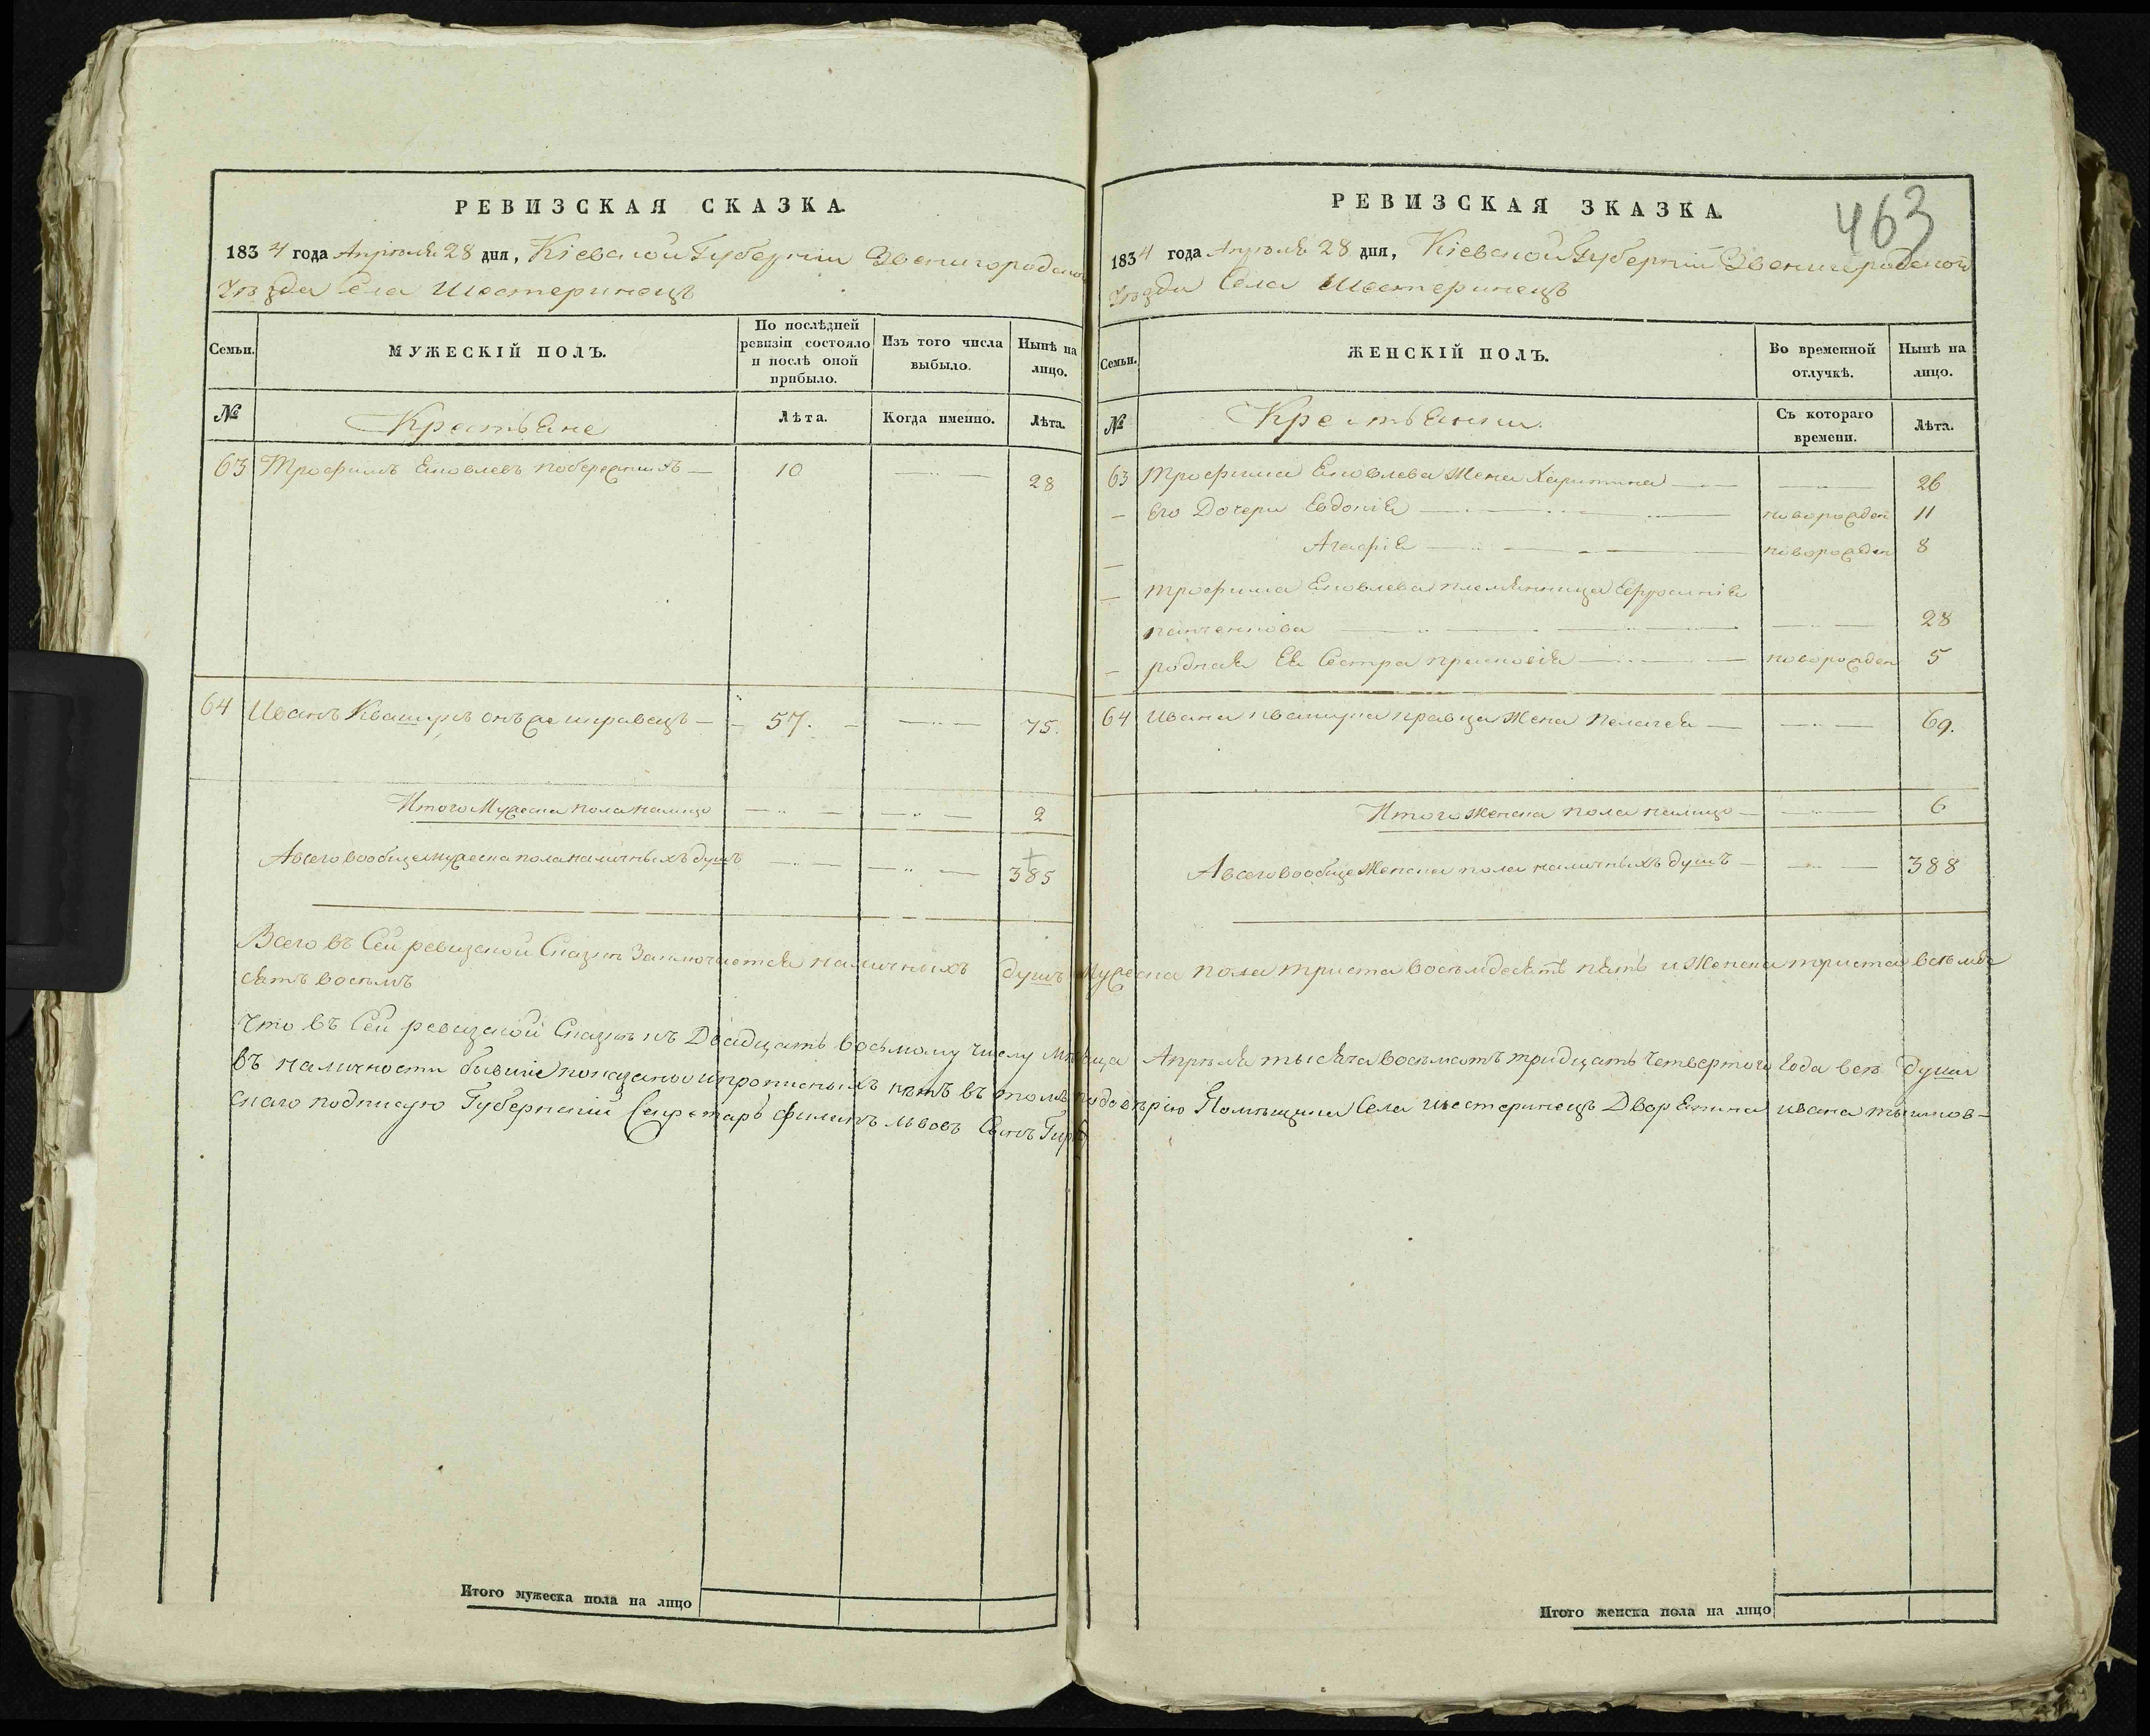 РЕВИЗСКАЯ СКАЗКА.
1834 года Апрѣля 28 дня, Кіевской Губерніи Звенигородской
Уѣзда Села Шестеринецъ
Семьи.
МУЖЕСКІЙ ПОЛЪ.
По послѣдней ревизіи состояло и послѣ оной прибыло.
Изъ того числа выбыло.
Нынѣ на лицо.
№
Крестьяне
Лѣта.
Когда именно.
Лѣта.
63 Трофимъ Яковлевъ побережникъ — 10 28
64 Иванъ Квашукъ онъ же правецъ — 57. 75.
Итого Мужеска пола налицо 2
А всего вообще мужеска пола наличныхъ душъ 385
РЕВИЗСКАЯ ЗКАЗКА.
463
1834 года Апрѣля 28 дня, Кіевской Губерніи Звенигородской
Уѣзда Села Шестеринецъ
Семьи.
ЖЕНСКІЙ ПОЛЪ.
Во временной отлучкѣ.
Нынѣ на лицо.
№
Крестьянки.
Съ котораго времени.
Лѣта.
63 Трофима Яковлева Жена Харитина 26
— Его Дочери Евдокія новорожден 11
— Агафія новорожден 8
— Трофима Яковлева племянница Ефросинія
панченкова 28
— родная Ея Сестра прасковія новорожден 5
64 Ивана правца Жена Пелагея 69.
Итого Женска пола налицо 6
А всего вообще Женска пола наличныхъ душъ 388
Всего въ Сей ревизской Сказкѣ Заключается наличныхъ душъ Мужеска пола триста восемьдесятъ пять и Женска триста восемьде
сятъ восемь
Что въ Сей ревизской Сказкѣ къ Двадцать восьмому числу Мѣсяца Апрѣля тысяча восемьсотъ тридцать Четвертого Года всѣ души
въ наличности бывшіе показано и прописныхъ нѣтъ въ томъ по довѣрію Помѣщика Села Шестеринецъ Дворянина Ивана
скаго подписую Губернскій Секретарь филипъ львовъ Сынъ
Итого мужеска пола на лицо
Итого женска пола на лицо